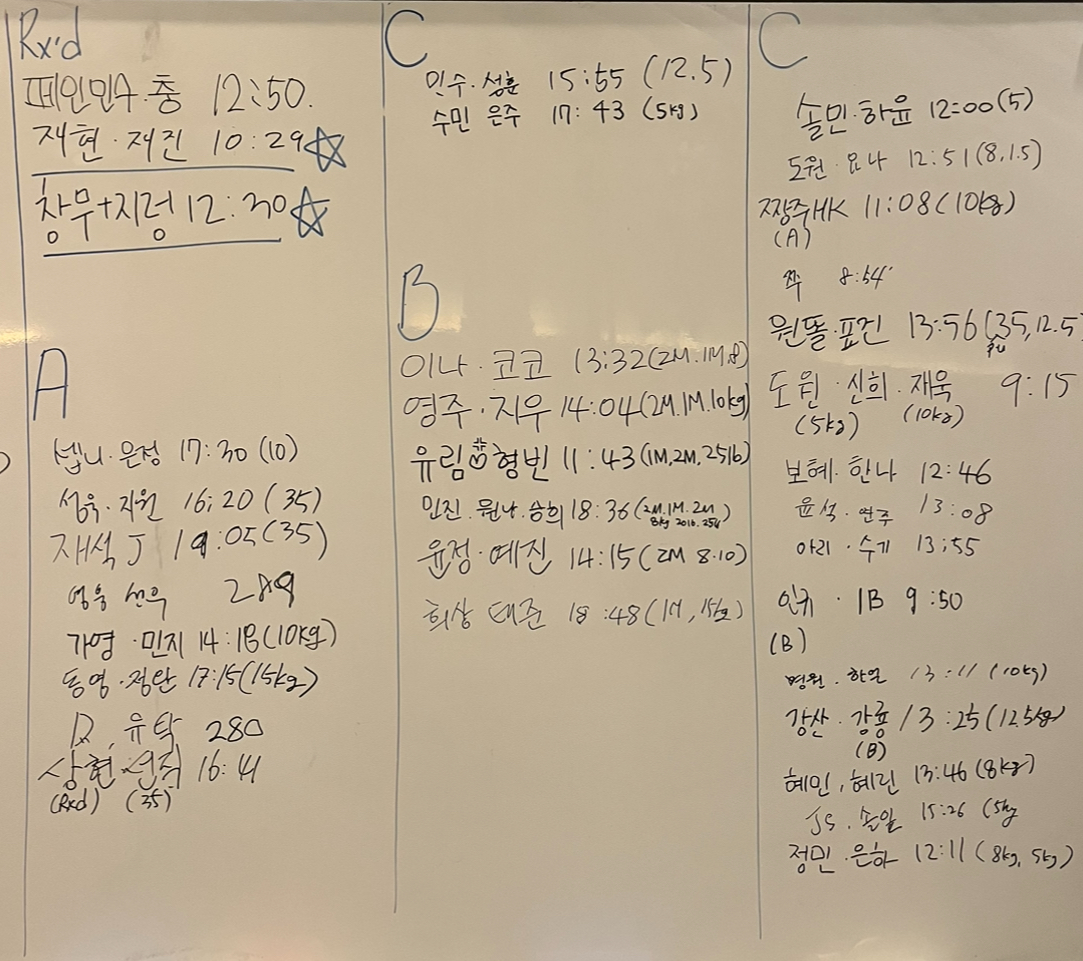 Rx'd
페인민수.충 12:50.
재현.재진 10:29
창무+지렁 12:30
A
셉니.은정 17:30 (10)
성욱.지원 16:20 (35)
재석 J 19:05 (35)
영웅 선우 289
가영.민지 14:18 (10kg)
동영.정완 17:15 (15kg)
D. 유탁 280
상현 16:41
(Rxd) (35)
C
민수.성훈 15:55 (12.5)
수민 은주 17:43 (5kg)
B
이나.코코 13:32 (2M.1M.8)
영주.지우 14:04 (2M.1M.10kg)
유림 형빈 11:43 (1M,2M,25lb)
민진.원나.승희 18:36 (2M.1M.2M
8kg 20lb.25lb)
윤정.예진 14:15 (2M 8.10)
희상 태준 18:48 (1M, 15kg)
C
솔민.하윤 12:00 (5)
도원.요나 12:51 (8,1.5)
짱주HK 11:08 (10kg)
(A)
쭈 8:54
원똘.표건 13:56 (35,12.5)
도원.신희.재욱 9:15
(5kg) (10kg)
보혜.한나 12:46
윤석.연주 13:08
아리.수기 13:55
인귀.IB 9:50
(B)
명원.한얼 13:11 (10kg)
강산.강룡 13:25 (12.5kg)
(B)
혜민,혜린 13:46 (8kg)
JS.솔잎 15:26 (5kg
정민.은하 12:11 (8kg, 5kg)